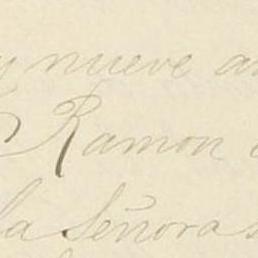 y nueve
Ramon
la Señora